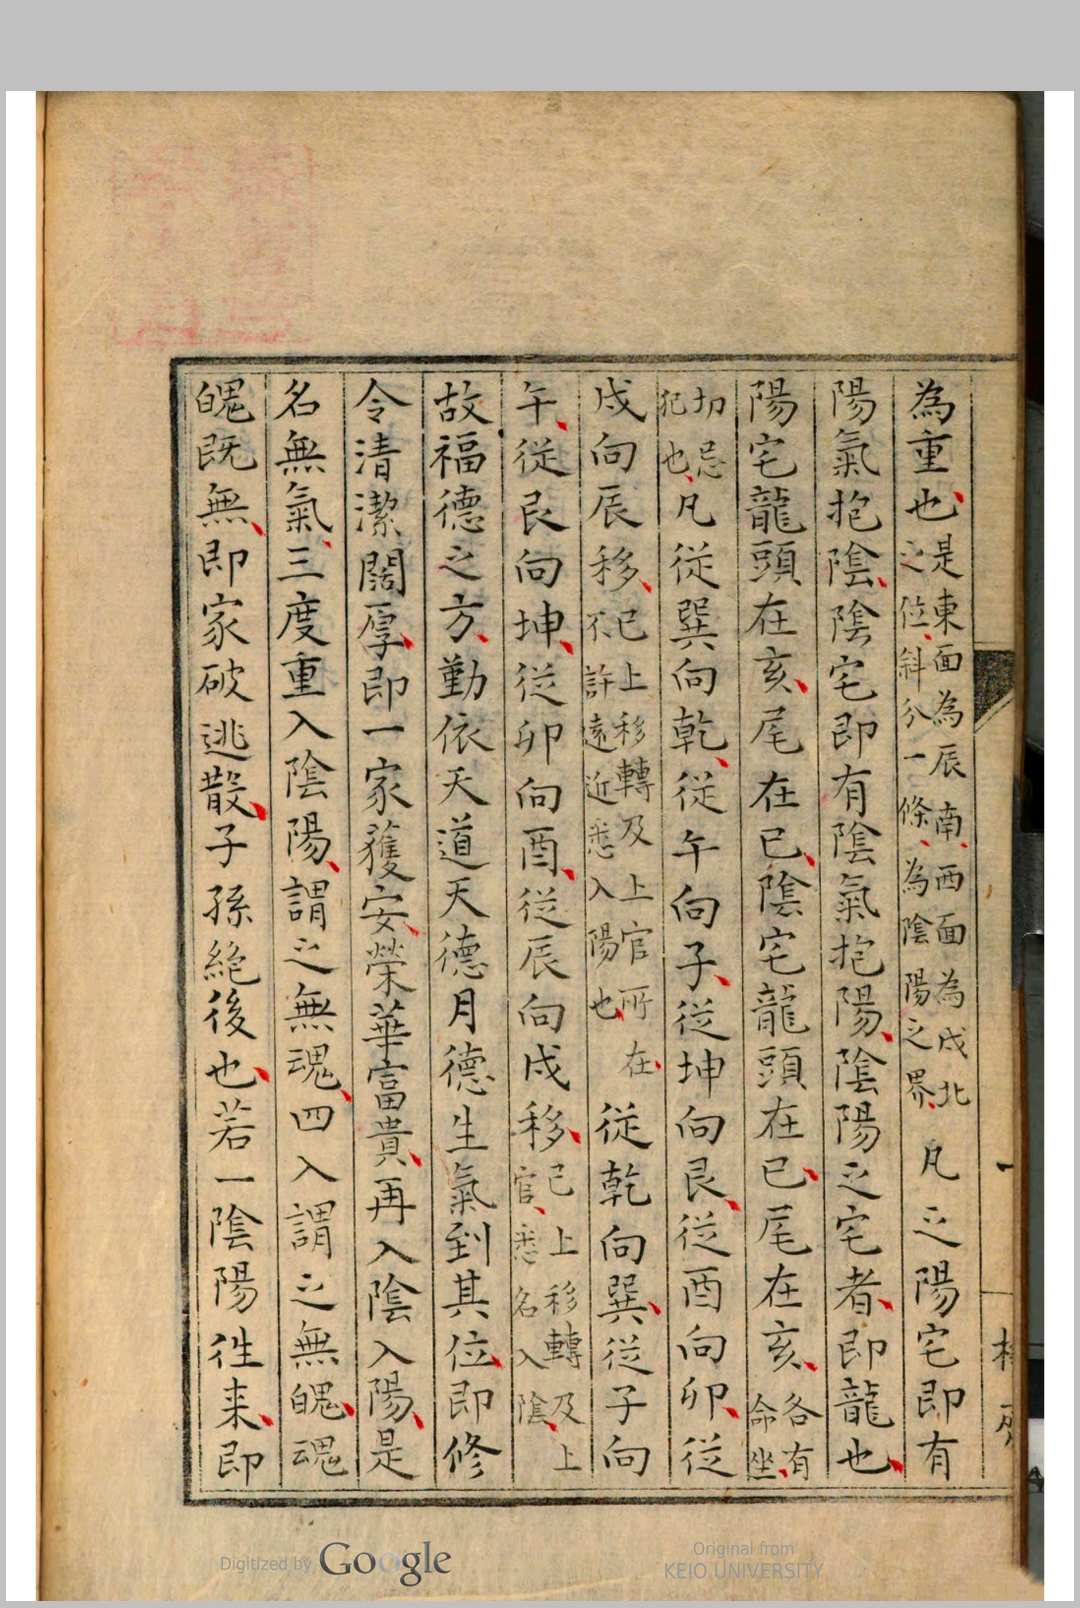 為重也是東面為辰南西面為戌北之位斜分一條為陰陽之界凡之陽宅即有
陽氣抱陰陰宅即有陰氣抱陽陰陽之宅者即龍也
陽宅龍頭在亥尾在巳陰宅龍頭在巳尾在亥各有命坐
切忌犯也凡從巽向乾從午向子從坤向艮從酉向卯從
戌向辰移已上移轉及上官所在不許遠近悉入陽也從乾向巽從子向
午從艮向坤從卯向酉從辰向戌移已上移轉及上官悉名入陰
故福德之方勤依天道天德月德生氣到其位即修
令清潔闊厚即一家獲安榮華富貴再入陰入陽是
名無氣三度重入陰陽謂之無魂四入謂之無魄魂
魄既無即家破逃散子孫絶後也若一陰陽徃来即
Digitized by Google
Original from
KEIO UNIVERSITY